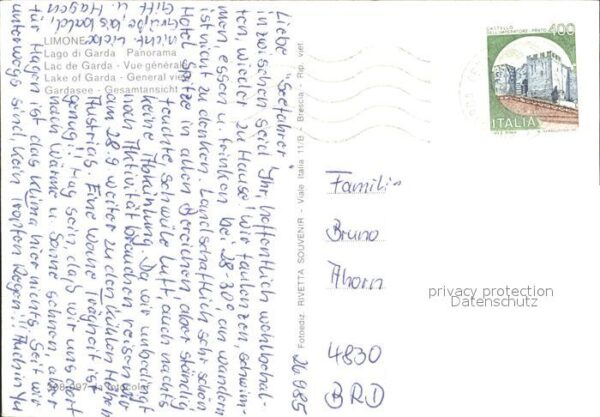 LIMONE
Lago di Garda Panorama
Lac de Garda - Vue générale
Lake of Garda - General view
Gardasee - Gesamtansicht
Liebe "Seefahrer"
inzwischen seid Ihr, hoffentlich wohlbehal-
ten wieder zu Hause! Wir faulenzen, schwim-
men, essen u. trinken bei 28-30°, an wandern
ist nicht zu denken. Landschaftlich sehr schön
Hotel Spitze in allen Bereichen, aber ständig
feuchte, schwüle Luft, auch nachts
keine Abkühlung. Da wir unbedingt
noch Aktivität brauchen reisen wir
am 28.9 weiter zu den kühlen Höhen
Austrias. Eine wahre Trägheit ist
genug!! Mag sein, daß wir uns dort
nach Wärme u. Sonne sehnen, aber
für Hagen ist das Klima hier nichts. Seit wir
unterwegs sind kein Tropfen Regen!!
nicht liebe
Grüße bis bald,
u.
Fotoediz. RIVETTA SOUVENIR - Viale Italia 11/B - Brescia - Rip. viet.
26.9.85
CASTELLO
DELL'IMPERATORE - PRATO
400
ITALIA
Familie
Bruno
Ahorn
4830
BRD
privacy protection
Datenschutz